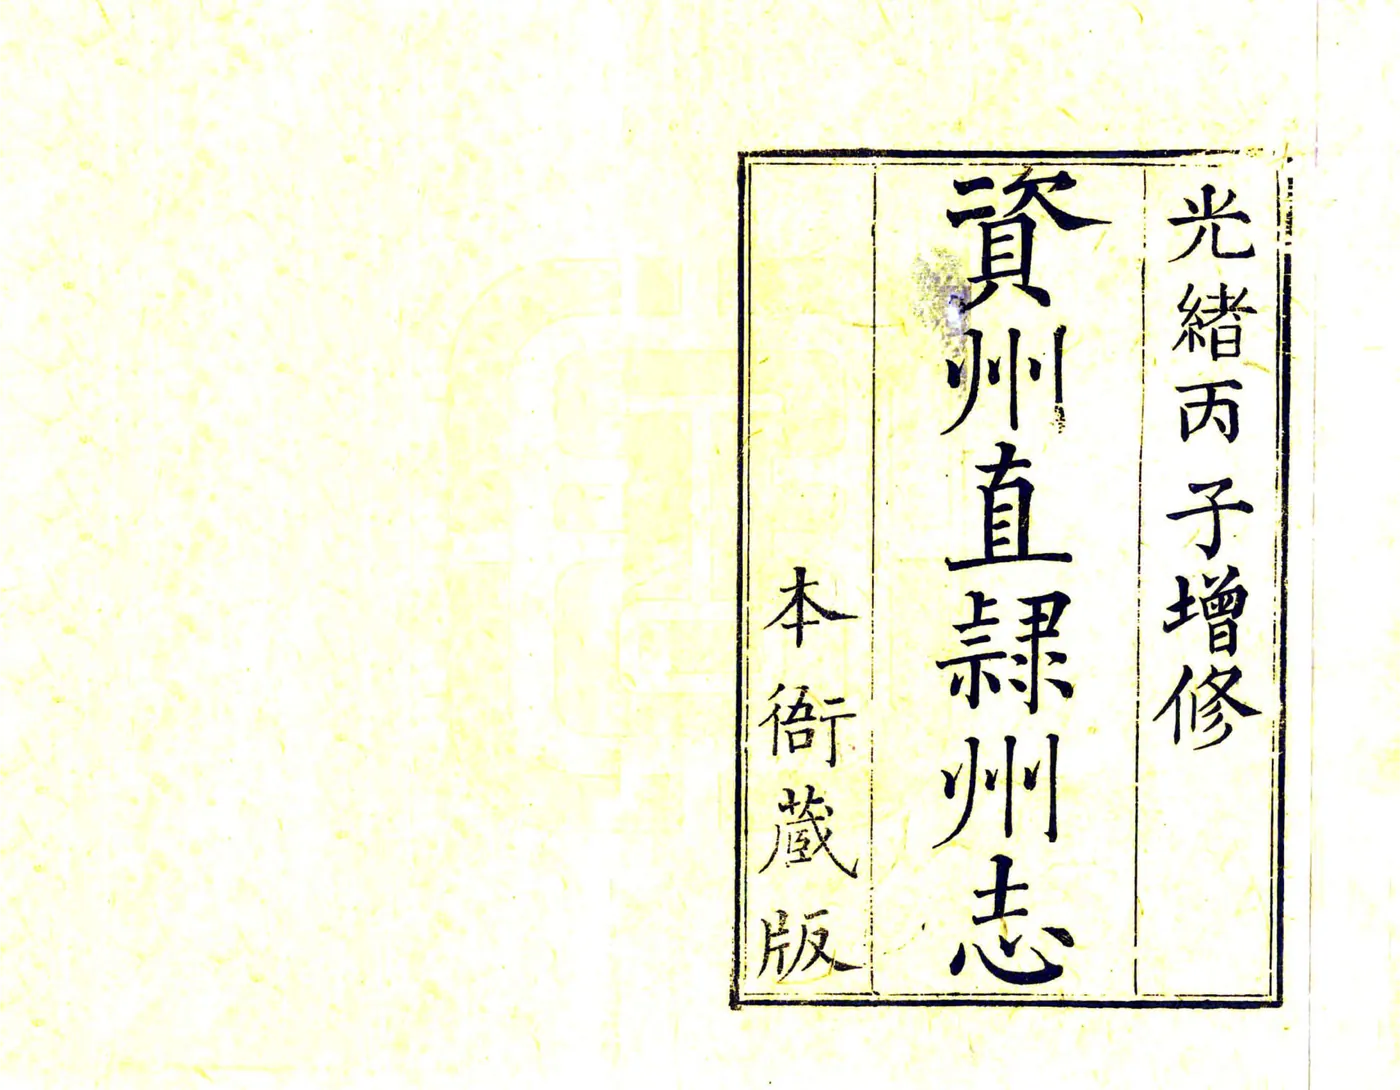 光緒丙子增修
資州直隷州志
本衙藏版